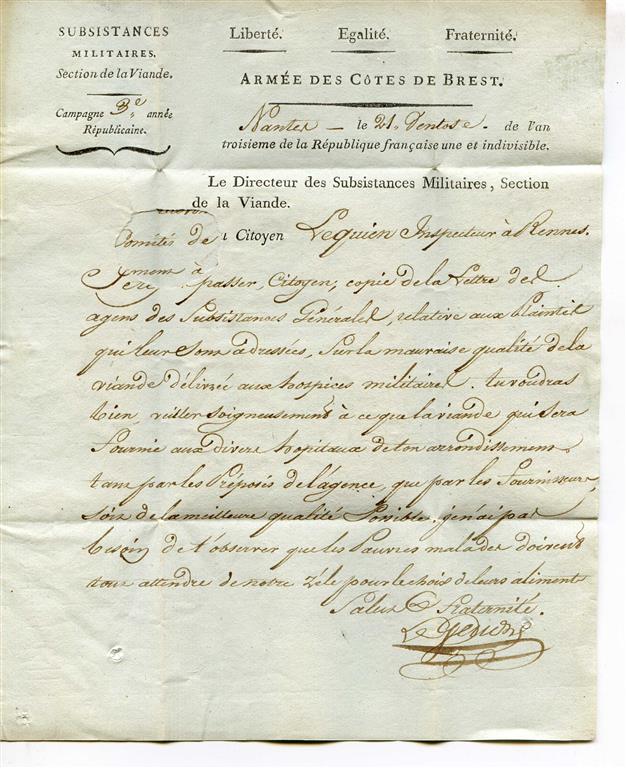 SUBSISTANCES
MILITAIRES.
Section de la Viande.
Campagne 3.e année
Républicaine.
Liberté. Egalité. Fraternité.
ARMÉE DES CÔTES DE BREST.
Nantes - le 21. Ventose. de l'an
troisieme de la République française une et indivisible.
Le Directeur des Subsistances Militaires, Section
de la Viande.
Comités de Citoyen Lequien Inspecteur à Rennes.
passer, Citoyen, copie de la Lettre des
agens des Subsistances Générales, relative aux Plaintes
qui leur sont adressées, Sur la mauvaise qualité de la
viande délivrée aux hospices militaires. tu voudras
bien, veiller Soigneusement à ce que la viande qui Sera
Fournie aux divers hopitaux de ton arrondissement
tant par les Préposés de l'agence, que par les Fournisseurs,
Soit de la meilleure qualité Possible, je n'ai pas
besoin de t'observer que les Pauvres malades doivent
tout attendre de notre Zéle pour le chois de leurs aliments
Salut & Fraternité.